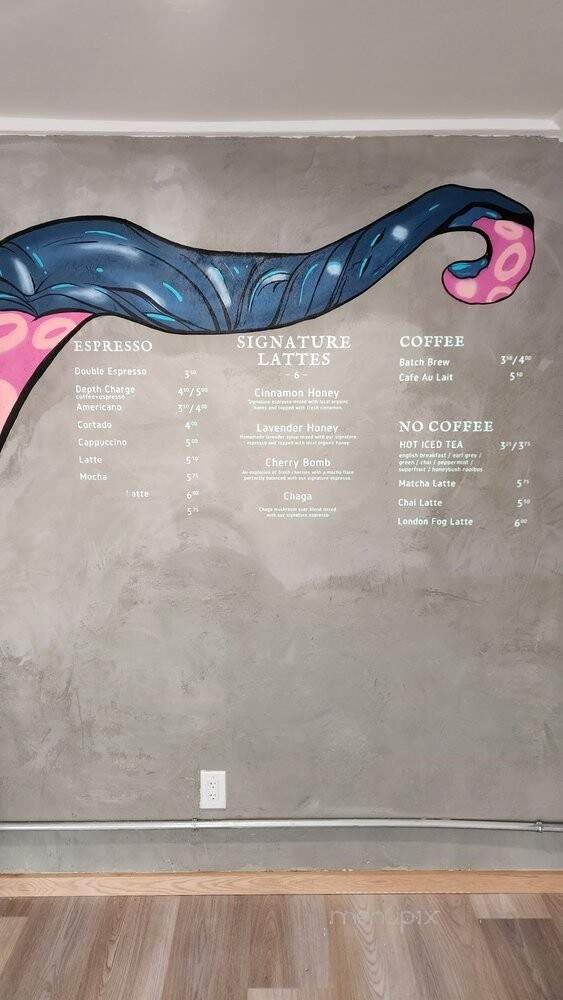 ESPRESSO
Double Espresso 3⁵⁰
Depth Charge 4⁵⁰/5⁰⁰
coffee+espresso
Americano 3⁵⁰/4⁰⁰
Cortado 4⁰⁰
Cappuccino 5⁰⁰
Latte 5⁵⁰
Mocha 5⁷⁵
latte 6⁰⁰
5⁷⁵
SIGNATURE
LATTES
- 6 -
Cinnamon Honey
Signature espresso mixed with local organic
honey and topped with fresh cinnamon.
Lavender Honey
Homemade lavender syrup mixed with our signature
espresso and topped with local organic honey.
Cherry Bomb
An explosion of fresh cherries with a mocha flare
perfectly balanced with our signature espresso.
Chaga
Chaga mushroom blend mixed
with our signature espresso
COFFEE
Batch Brew 3⁵⁰/4⁰⁰
Cafe Au Lait 5⁵⁰
NO COFFEE
HOT ICED TEA 3²⁵/3⁷⁵
english breakfast / earl grey /
green / chai / peppermint /
superfruit / honeybush rooibos
Matcha Latte 5⁷⁵
Chai Latte 5⁵⁰
London Fog Latte 6⁰⁰
menupix